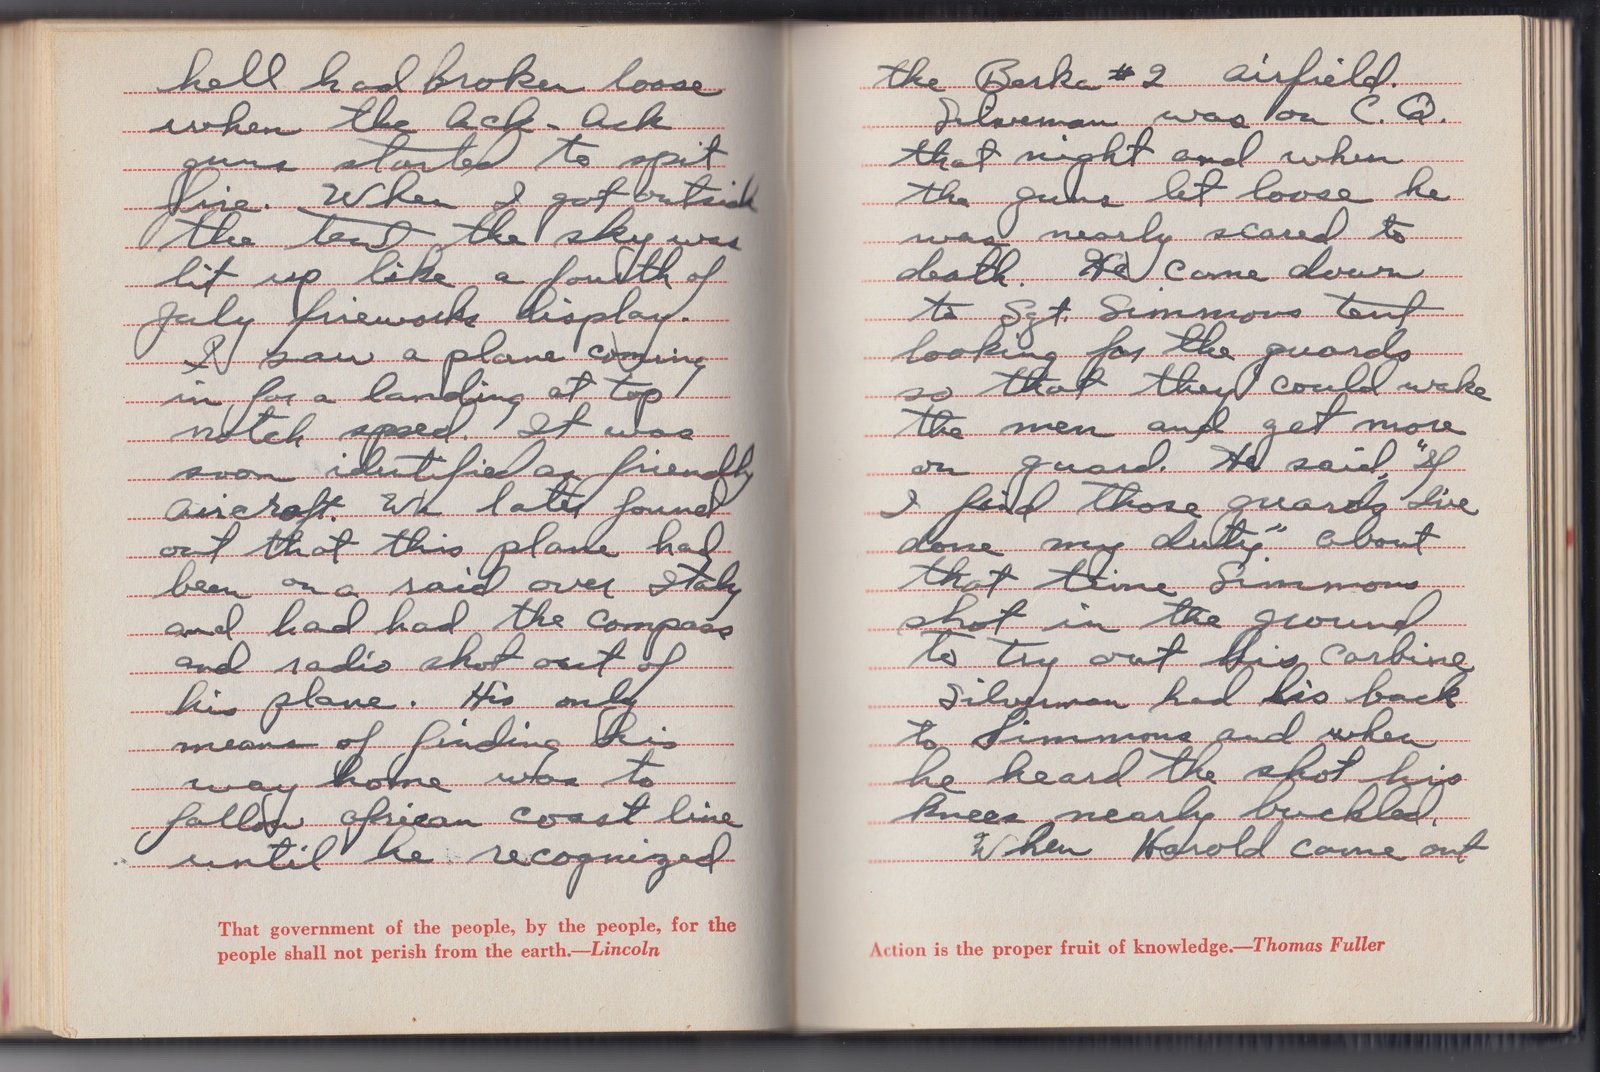 hell had broken loose
when the ack-ack
guns started to spit
fire. When I got outside
the tent the sky was
lit up like a fourth of
July fireworks display.
I saw a plane coming
in for a landing at top
notch speed. It was
soon identified as friendly
aircraft. We later found
out that this plane had
been on a raid over Italy
and had had the compass
and radio shot out of
his plane. His only
means of finding his
way home was to
follow african coast line
until he recognized
That government of the people, by the people, for the
people shall not perish from the earth.—Lincoln
the Berka #2 airfield.
Silverman was on C.Q.
that night and when
the guns let loose he
was nearly scared to
death. He came down
to Sgt. Simmons tent
looking for the guards
so that they could wake
the men and get more
on guard. He said, "If
I find those guards I've
done my duty" about
that time Simmons
shot in the ground
to try out his carbine
Silverman had his back
to Simmons and when
he heard the shot his
knees nearly buckled.
When Harold came out
Action is the proper fruit of knowledge.—Thomas Fuller